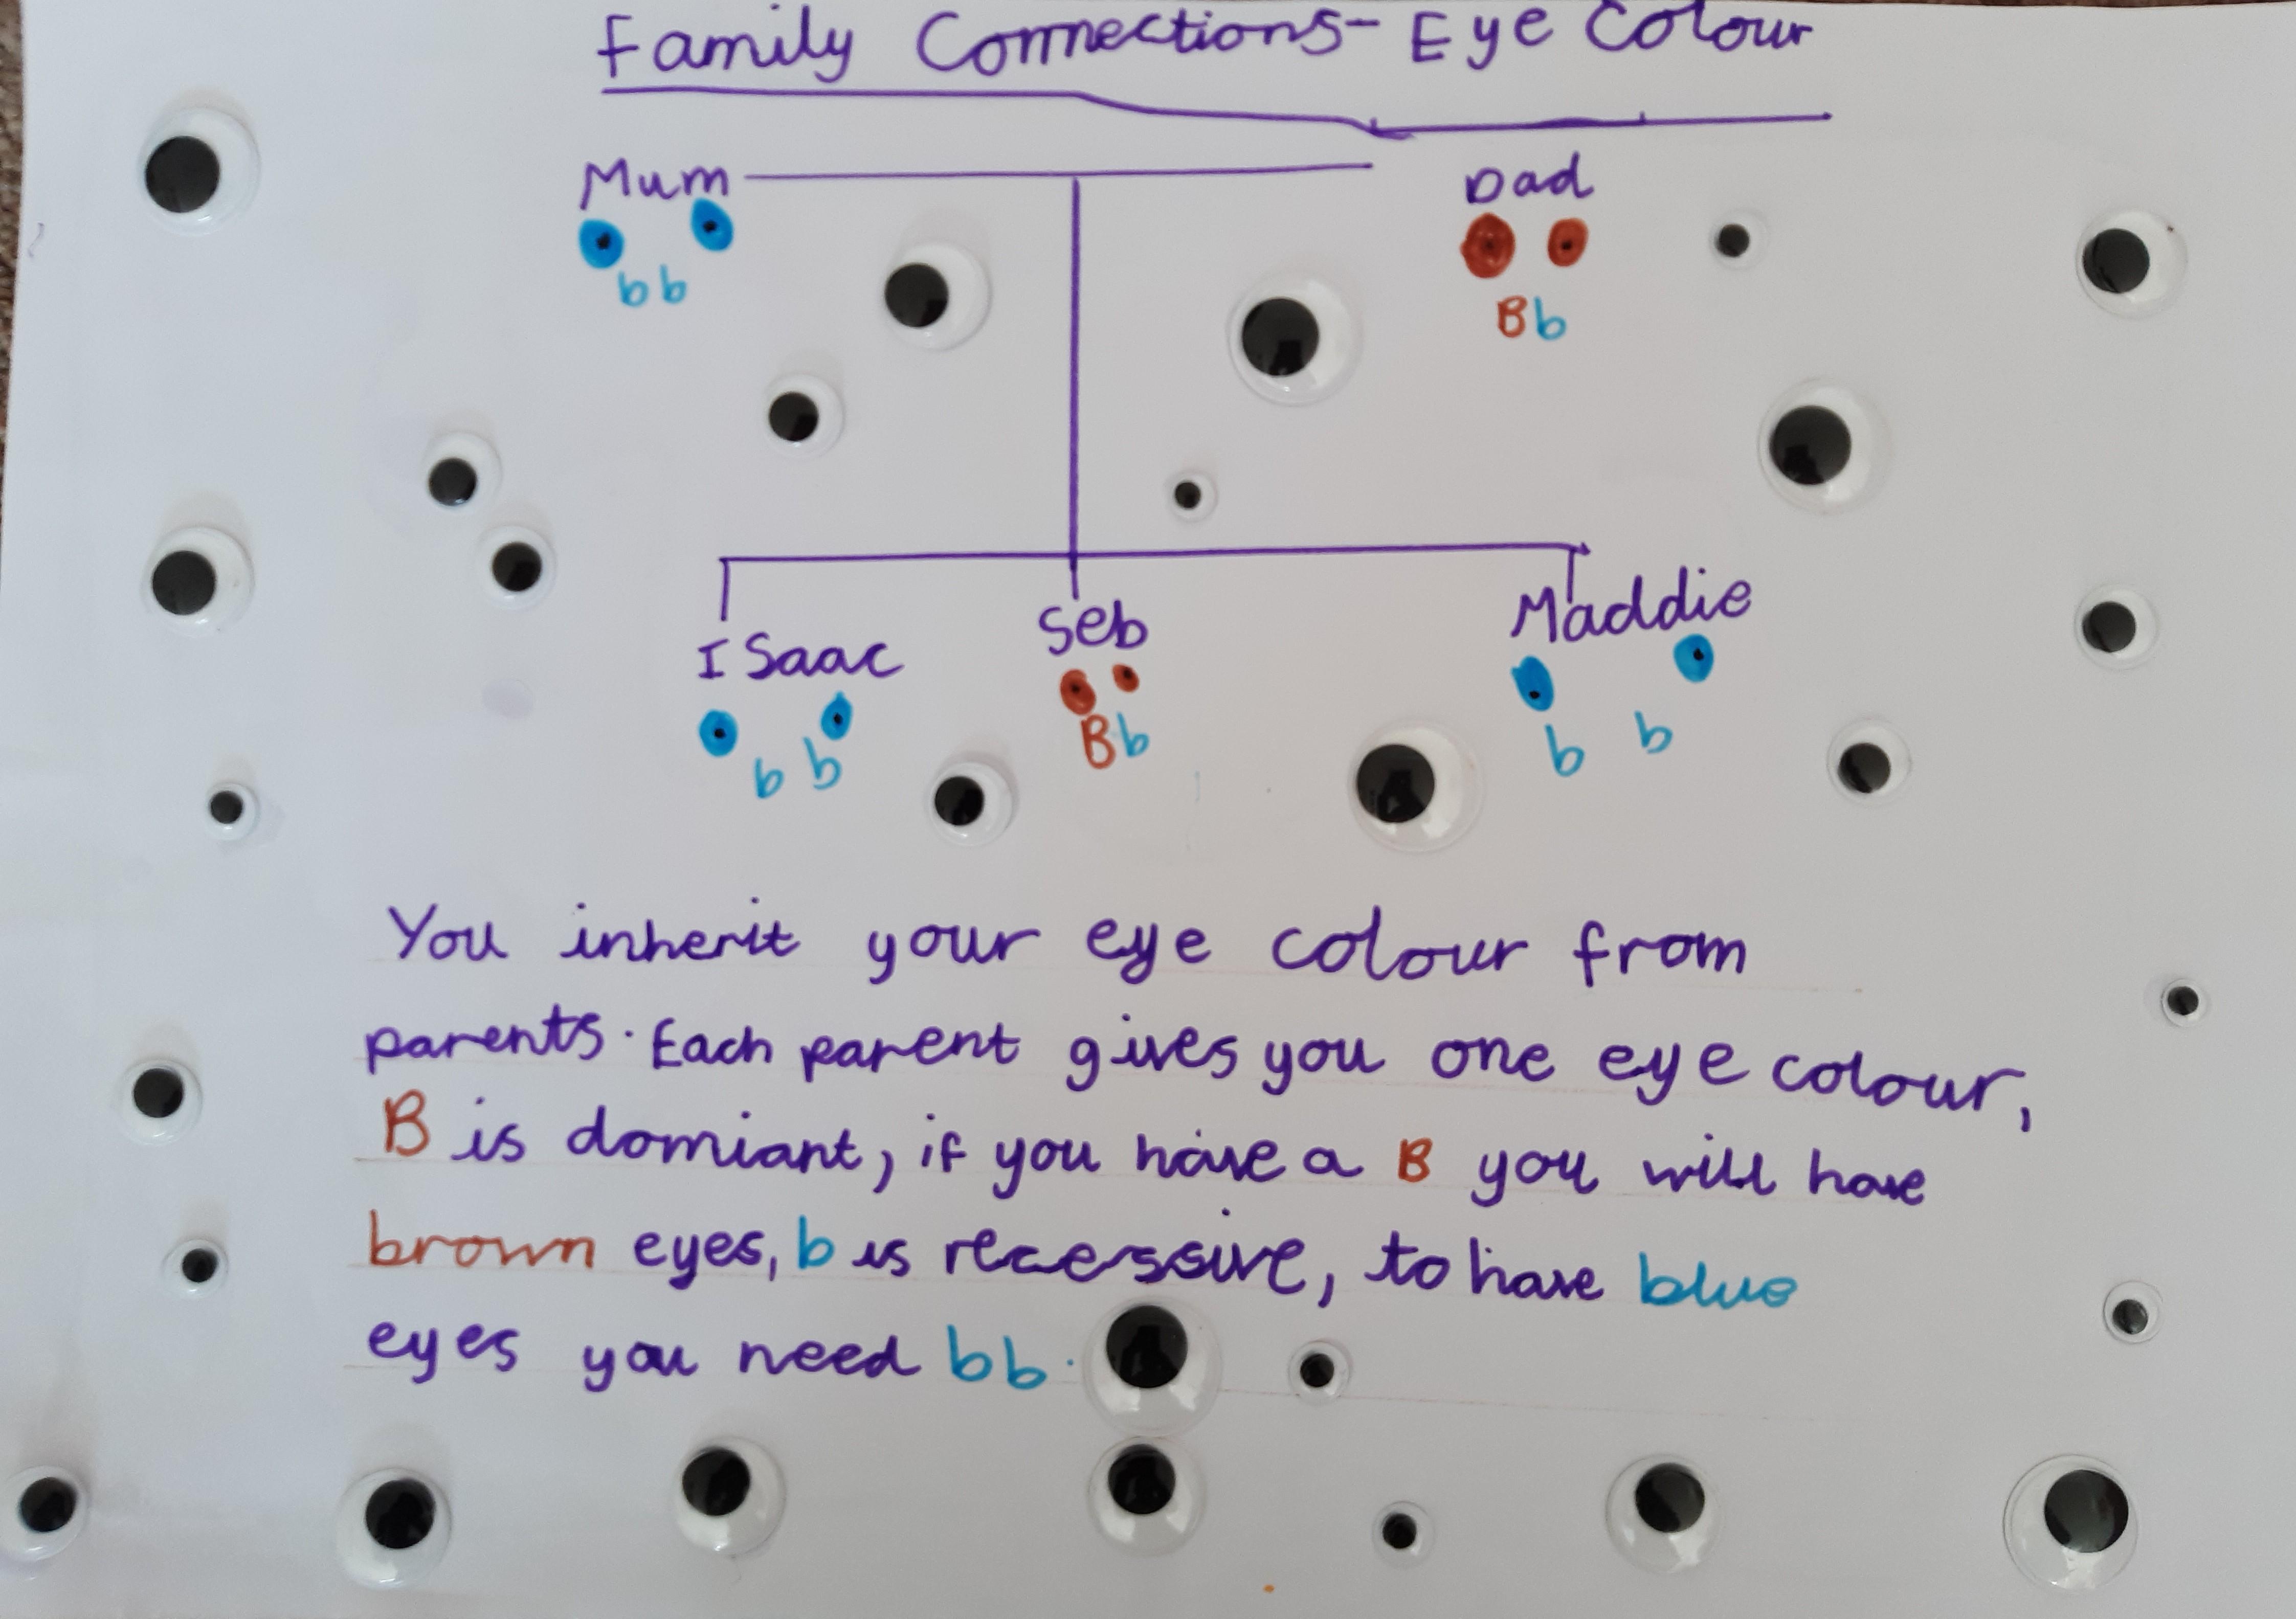 Family Connections- Eye Colour
Mum Dad
bb Bb
Isaac Seb Maddie
b b Bb b b
You inherit your eye colour from
parents. Each parent gives you one eye colour,
B is domiant, if you have a B you will have
brown eyes, b is recessive, to have blue
eyes you need bb.